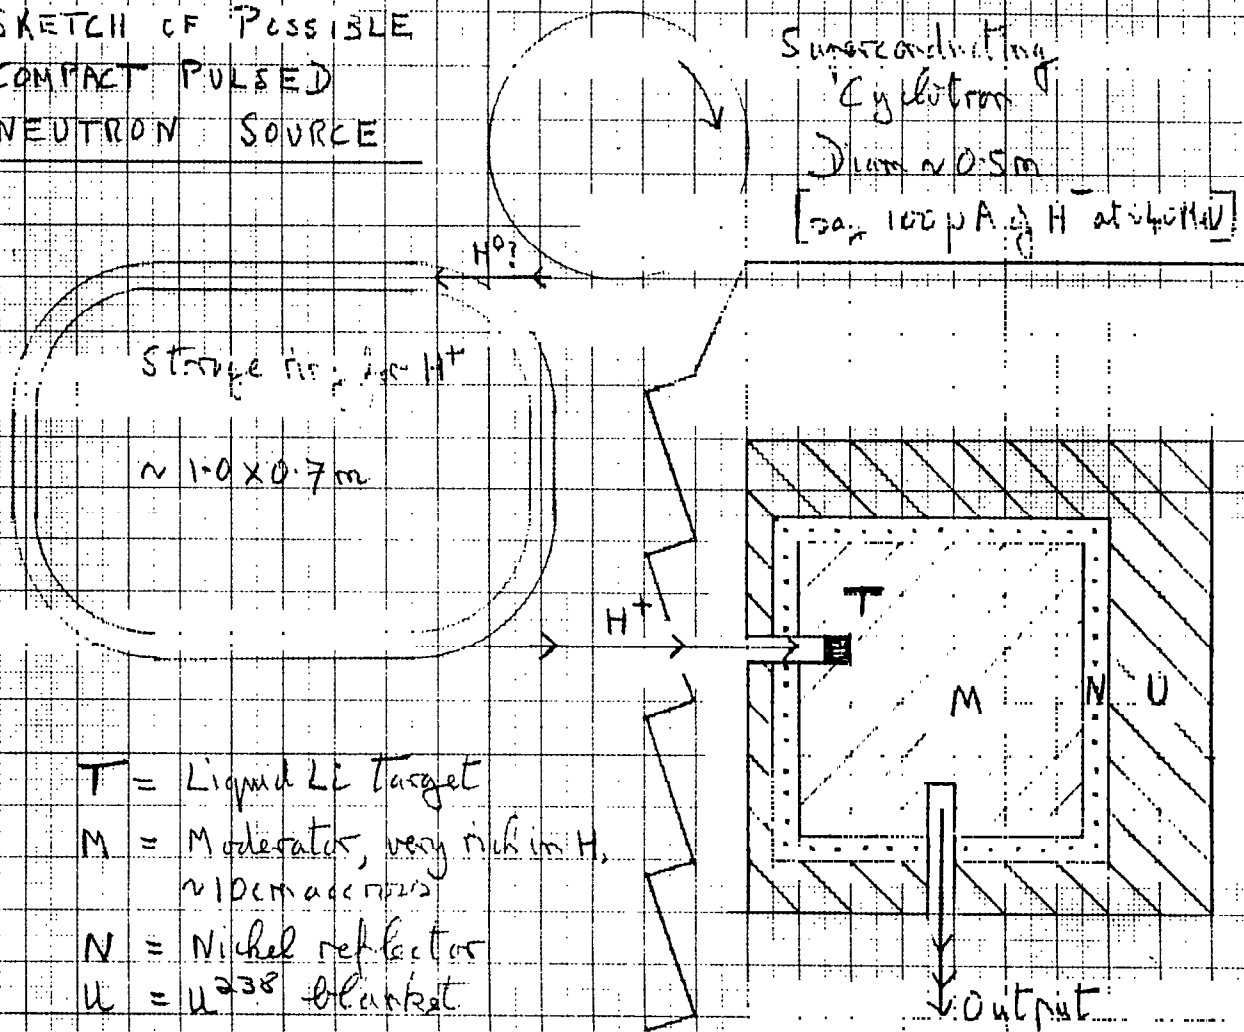 SKETCH OF POSSIBLE
COMPACT PULSED
NEUTRON SOURCE
Superconducting
Cyclotron
Diam ~ 0.5m
[say 100 μA of H⁻ at ~40 MeV]
H⁰?
Storage ring for H⁺
~ 1.0 x 0.7 m
H⁺
T
M
N
U
T = Liquid Li target
M = Moderator, very rich in H,
~10cm across
N = Nickel reflector
U = U²³⁸ blanket
Output